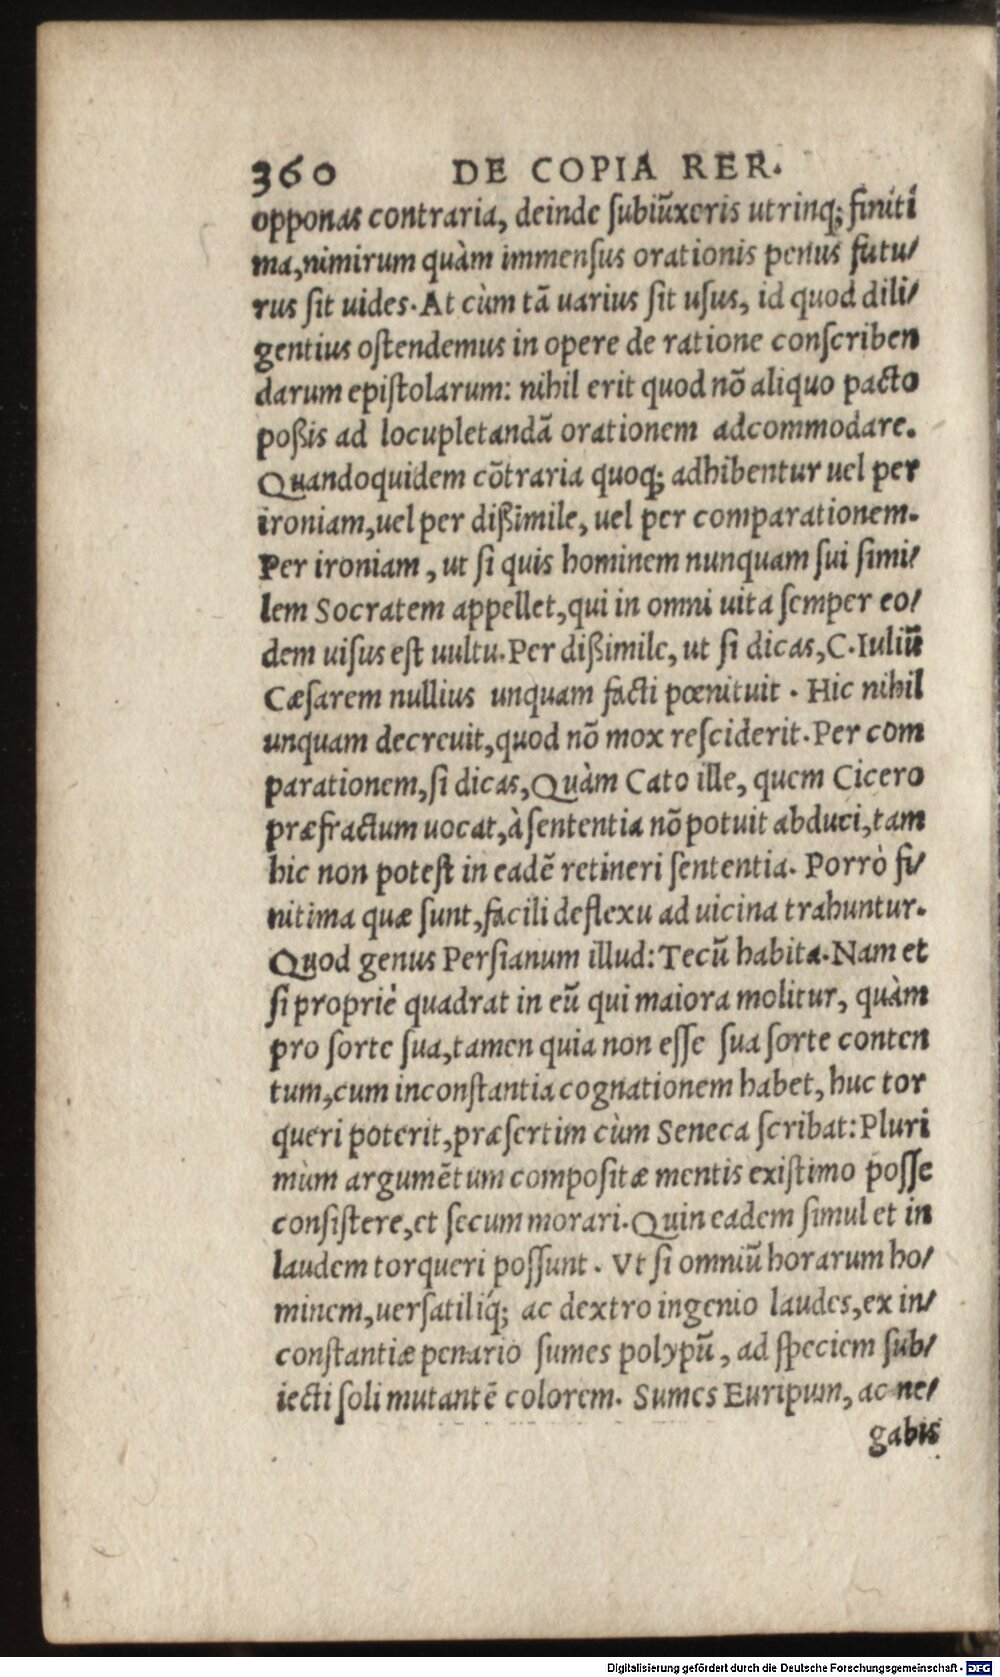 360 DE COPIA RER.
opponas contraria, deinde ſubiūxeris utrinq; finiti
ma, nimirum quàm immenſus orationis penus futu/
rus ſit uides. At cùm tā uarius ſit uſus, id quod dili/
gentius oſtendemus in opere de ratione conſcriben
darum epiſtolarum: nihil erit quod nō aliquo pacto
poßis ad locupletandā orationem adcommodare.
Quandoquidem cōtraria quoq; adhibentur uel per
ironiam, uel per dißimile, uel per comparationem.
Per ironiam, ut ſi quis hominem nunquam ſui ſimi/
lem Socratem appellet, qui in omni uita ſemper eo/
dem uiſus eſt uultu. Per dißimile, ut ſi dicas, C. Iuliū
Cæſarem nullius unquam facti pœnituit. Hic nihil
unquam decreuit, quod nō mox reſciderit. Per com
parationem, ſi dicas, Quàm Cato ille, quem Cicero
præfractum uocat, à ſententia nō potuit abduci, tam
hic non poteſt in eadē retineri ſententia. Porrò fi/
nitima quæ ſunt, facili deflexu ad uicina trahuntur.
Quod genus Perſianum illud: Tecū habita. Nam et
ſi propriè quadrat in eū qui maiora molitur, quàm
pro ſorte ſua, tamen quia non eſſe ſua ſorte conten
tum, cum inconſtantia cognationem habet, huc tor
queri poterit, præſertim cùm Seneca ſcribat: Pluri
mùm argumētum compoſitæ mentis exiſtimo poſſe
conſiſtere, et ſecum morari. Quin eadem ſimul et in
laudem torqueri poſſunt. Vt ſi omniū horarum ho/
minem, uerſatiliq́; ac dextro ingenio laudes, ex in/
conſtantiæ penario ſumes polypū, ad ſpeciem ſub/
iecti ſoli mutantē colorem. Sumes Euripum, ac ne/
gabis
Digitalisierung gefördert durch die Deutsche Forschungsgemeinschaft - DFG